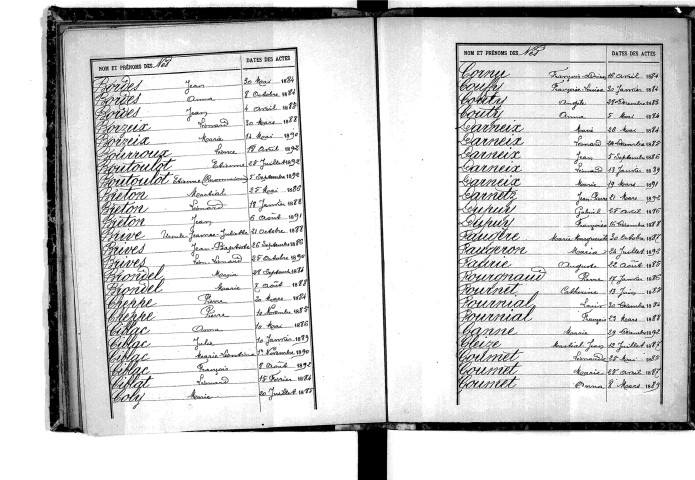 NOM ET PRÉNOMS DES Nés DATES DES ACTES
Bordes Jean 30 Mai 1884
Bordes Anna 8 Octobre 1884
Bordes Jean 4 Avril 1885
Borzeix Léonard 30 Mars 1888
Borzeix Marie 14 Mai 1890
Bourroux 18 Avril 1892
Boutoulot Etienne 28 Juillet 1892
Boutoulot Etienne 5 Septembre 1892
Breton Martial 25 Mai 1886
Breton Léonard 18 Janvier 1888
Breton Jean 6 Août 1891
Brive Jeanne Juliette 21 Octobre 1888
Brives Jean Baptiste 26 Septembre 1886
Brives Léonard 25 Octobre 1890
Briondel Marie 28 Septembre 1884
Briondel Marie 7 Août 1888
Cheppe Pierre 30 Mars 1884
Cheppe Pierre 10 Novembre 1885
Ciblac Anna 10 Mai 1886
Ciblac Julie 10 Janvier 1889
Ciblac Marie 1er Novembre 1890
Ciblac François 8 Août 1892
Ciblat Léonard 15 Février 1884
Coly Marie 20 Juillet 1885
NOM ET PRÉNOMS DES Nés DATES DES ACTES
Cornu François 18 Avril 1884
Couty Françoise Louise 20 Janvier 1884
Couty Angèle 28 Décembre 1883
Couty Anna 5 Mai 1884
Darneix Marie 26 Mai 1884
Darneix Léonard 24 Décembre 1885
Darneix Jean 5 Septembre 1886
Darneix Léonard 13 Janvier 1889
Darneix Marie 19 Mars 1891
Darnetz Jean Pierre 21 Mars 1892
Dupuy Gabriel 25 Avril 1886
Dupuy Françoise 16 Décembre 1888
Faugère Marie Marguerite 30 Octobre 1887
Faugeron Maria 24 Juillet 1892
Auguste 22 Août 1885
Pierre 17 Janvier 1886
Catherine 13 Juin 1885
Fournial Louis 30 Décembre 1884
Fournial François 29 Mars 1888
Ganne Marie 29 Décembre 1892
Gleize Martial Jean 12 Juillet 1885
Goumet Léonarde 25 Mai 1885
Goumet Marie 28 Avril 1887
Goumet Anna 8 Mars 1889